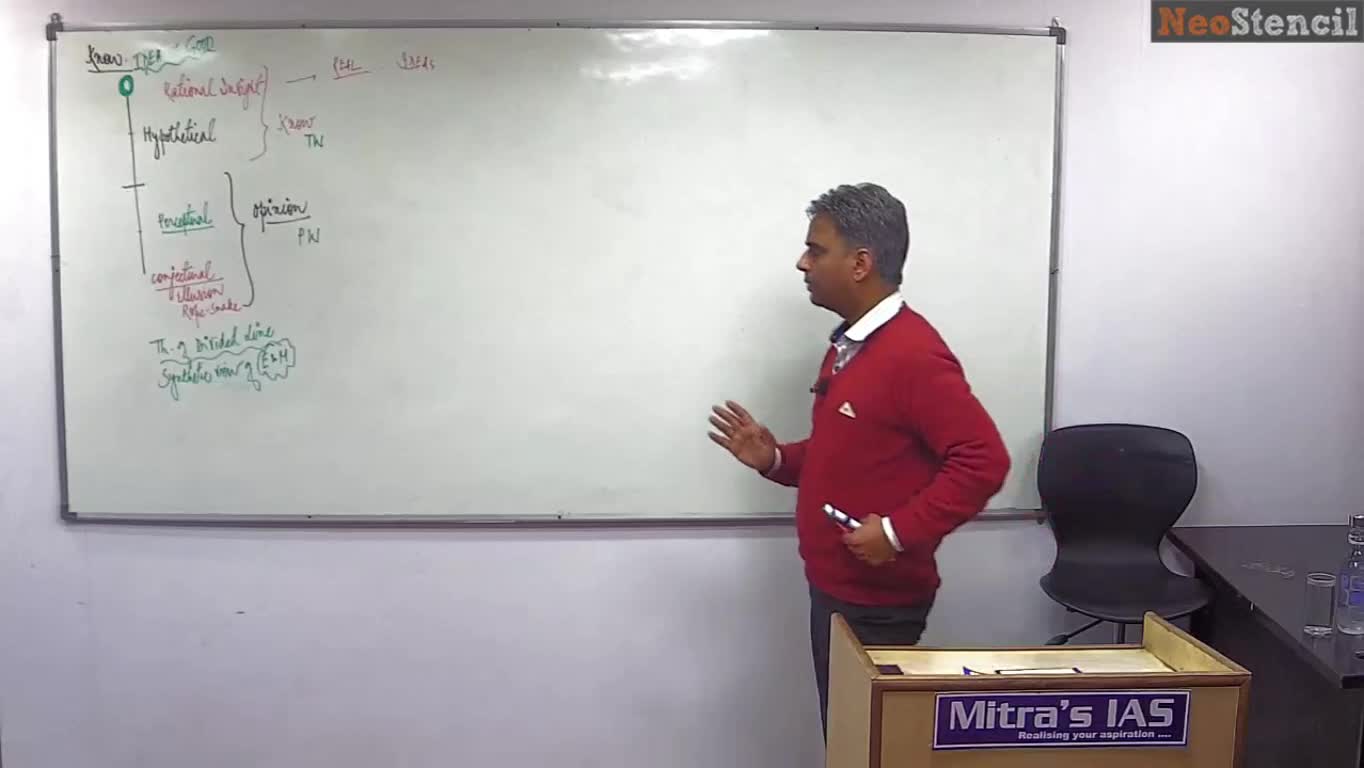 NeoStencil
Know. IDEA of GOOD
Rational Insight → REAL IDEAS
Hypothetical
Know
TW
Perceptual
opinion
PW
conjectural
illusion
Rope-snake
Th. of Divided Line
Synthetic view of E & M
Mitra's IAS
Realising your aspiration ....